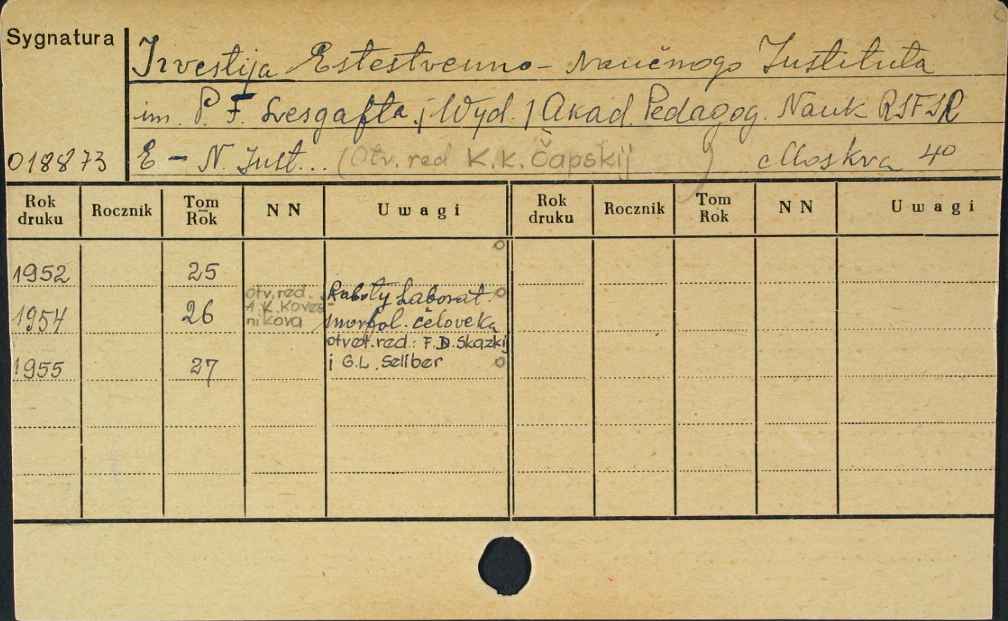 Sygnatura
Izvestija Estestvenno-Naučnogo Instituta
im. P. F. Lesgafta. ; Wyd. / Akad. Pedagog. Nauk RSFSR
018873 E - N. Inst... (Otv. red K. K. Čapskij) Moskva 4°
Rok druku Rocznik Tom Rok N N Uwagi Rok druku Rocznik Tom Rok N N Uwagi
1952 25
1954 26 otv. red. A. K. Koves nikova Raboty Laborat. morfol. čeloveka
otvet. red: F. D. Skazkij
1955 27 i G. L. Seliber